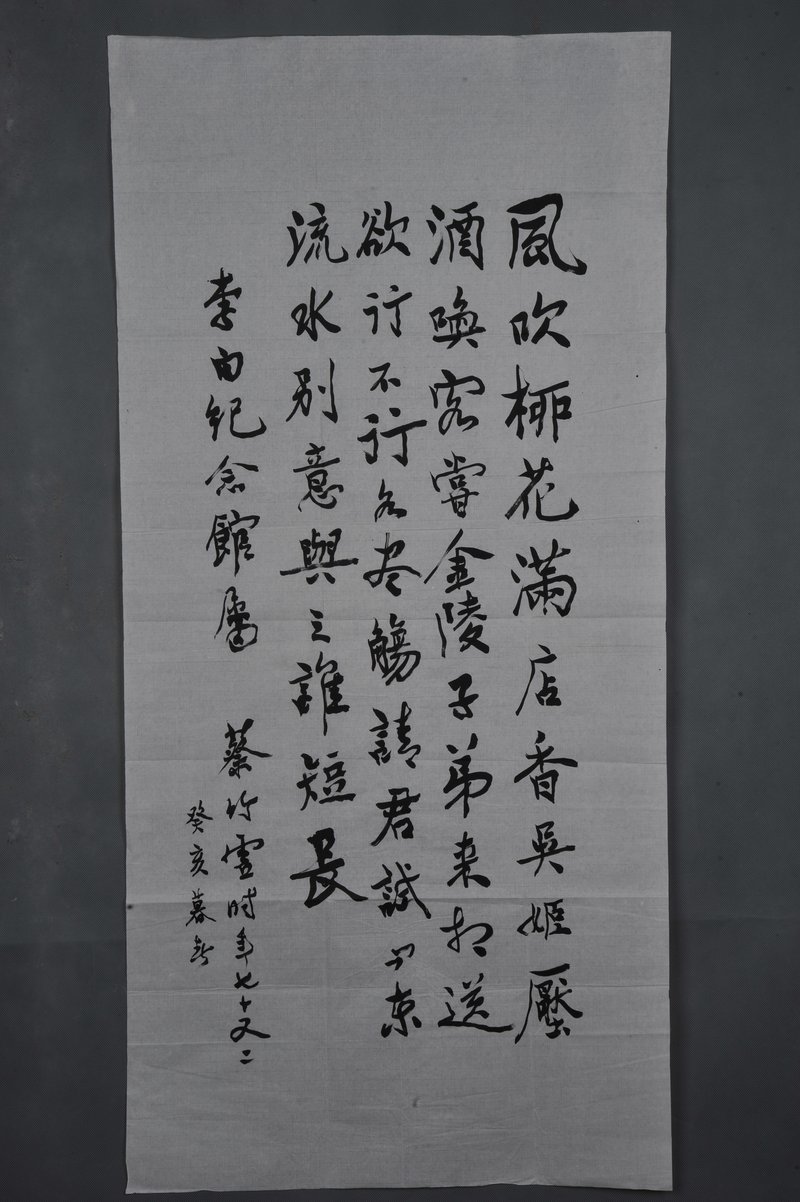 風吹柳花滿店香吳姬壓
酒喚客嘗金陵子弟来相送
欲行不行各尽觴請君試问東
流水别意與之誰短長
李白纪念館屬
蔡竹虚时年七十又二
癸亥暮春